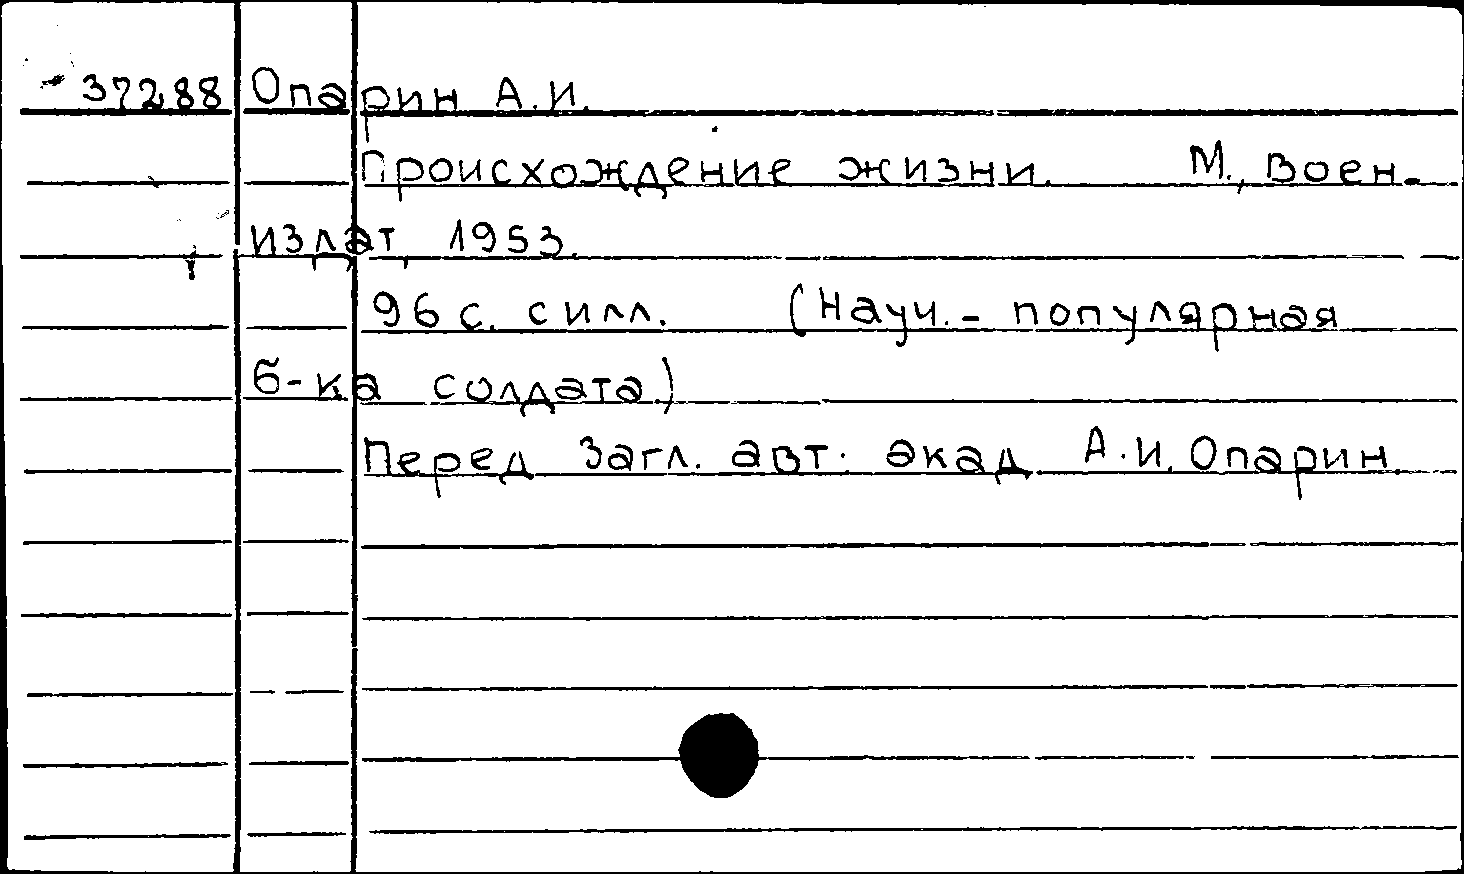 37288 Опарин А.И.
Происхождение жизни. М., Воен-
издат, 1953.
96 с. силл. (Науч.- популярная
б-ка солдата.)
Перед загл. авт. акад. А.И. Опарин